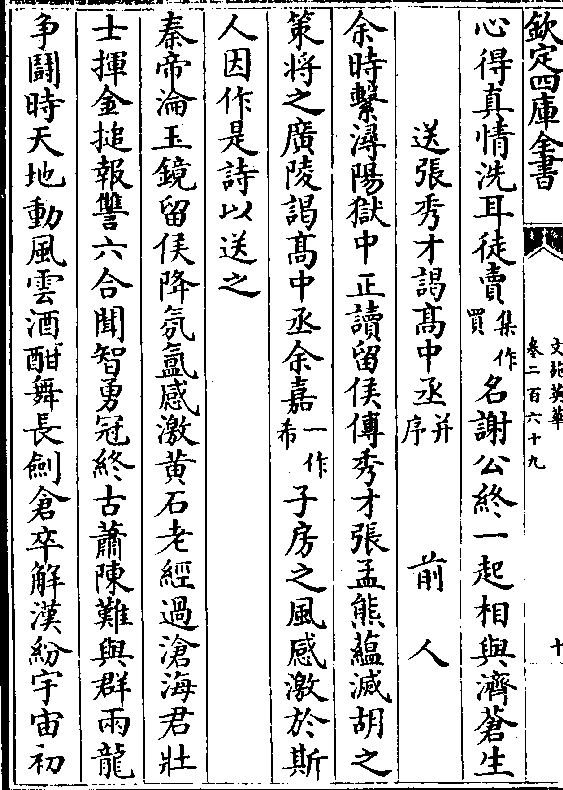 欽定四庫全書
文苑英華
卷二百六十九
十
心得真情洗耳徒賣集作買名謝公終一起相與濟蒼生
送張秀才謁髙中丞并序　前人
余時繫潯陽獄中正讀留侯傳秀才張孟熊蘊滅胡之
策将之廣陵謁髙中丞余嘉一作希子房之風感激於斯
人因作是詩以送之
秦帝淪玉鏡留侯降氛氲感激黄石老經過滄海君壯
士揮金搥報讐六合聞智勇冠終古蕭陳難與群兩龍
争鬬時天地動風雲酒酣舞長劍倉卒解漢紛宇宙初